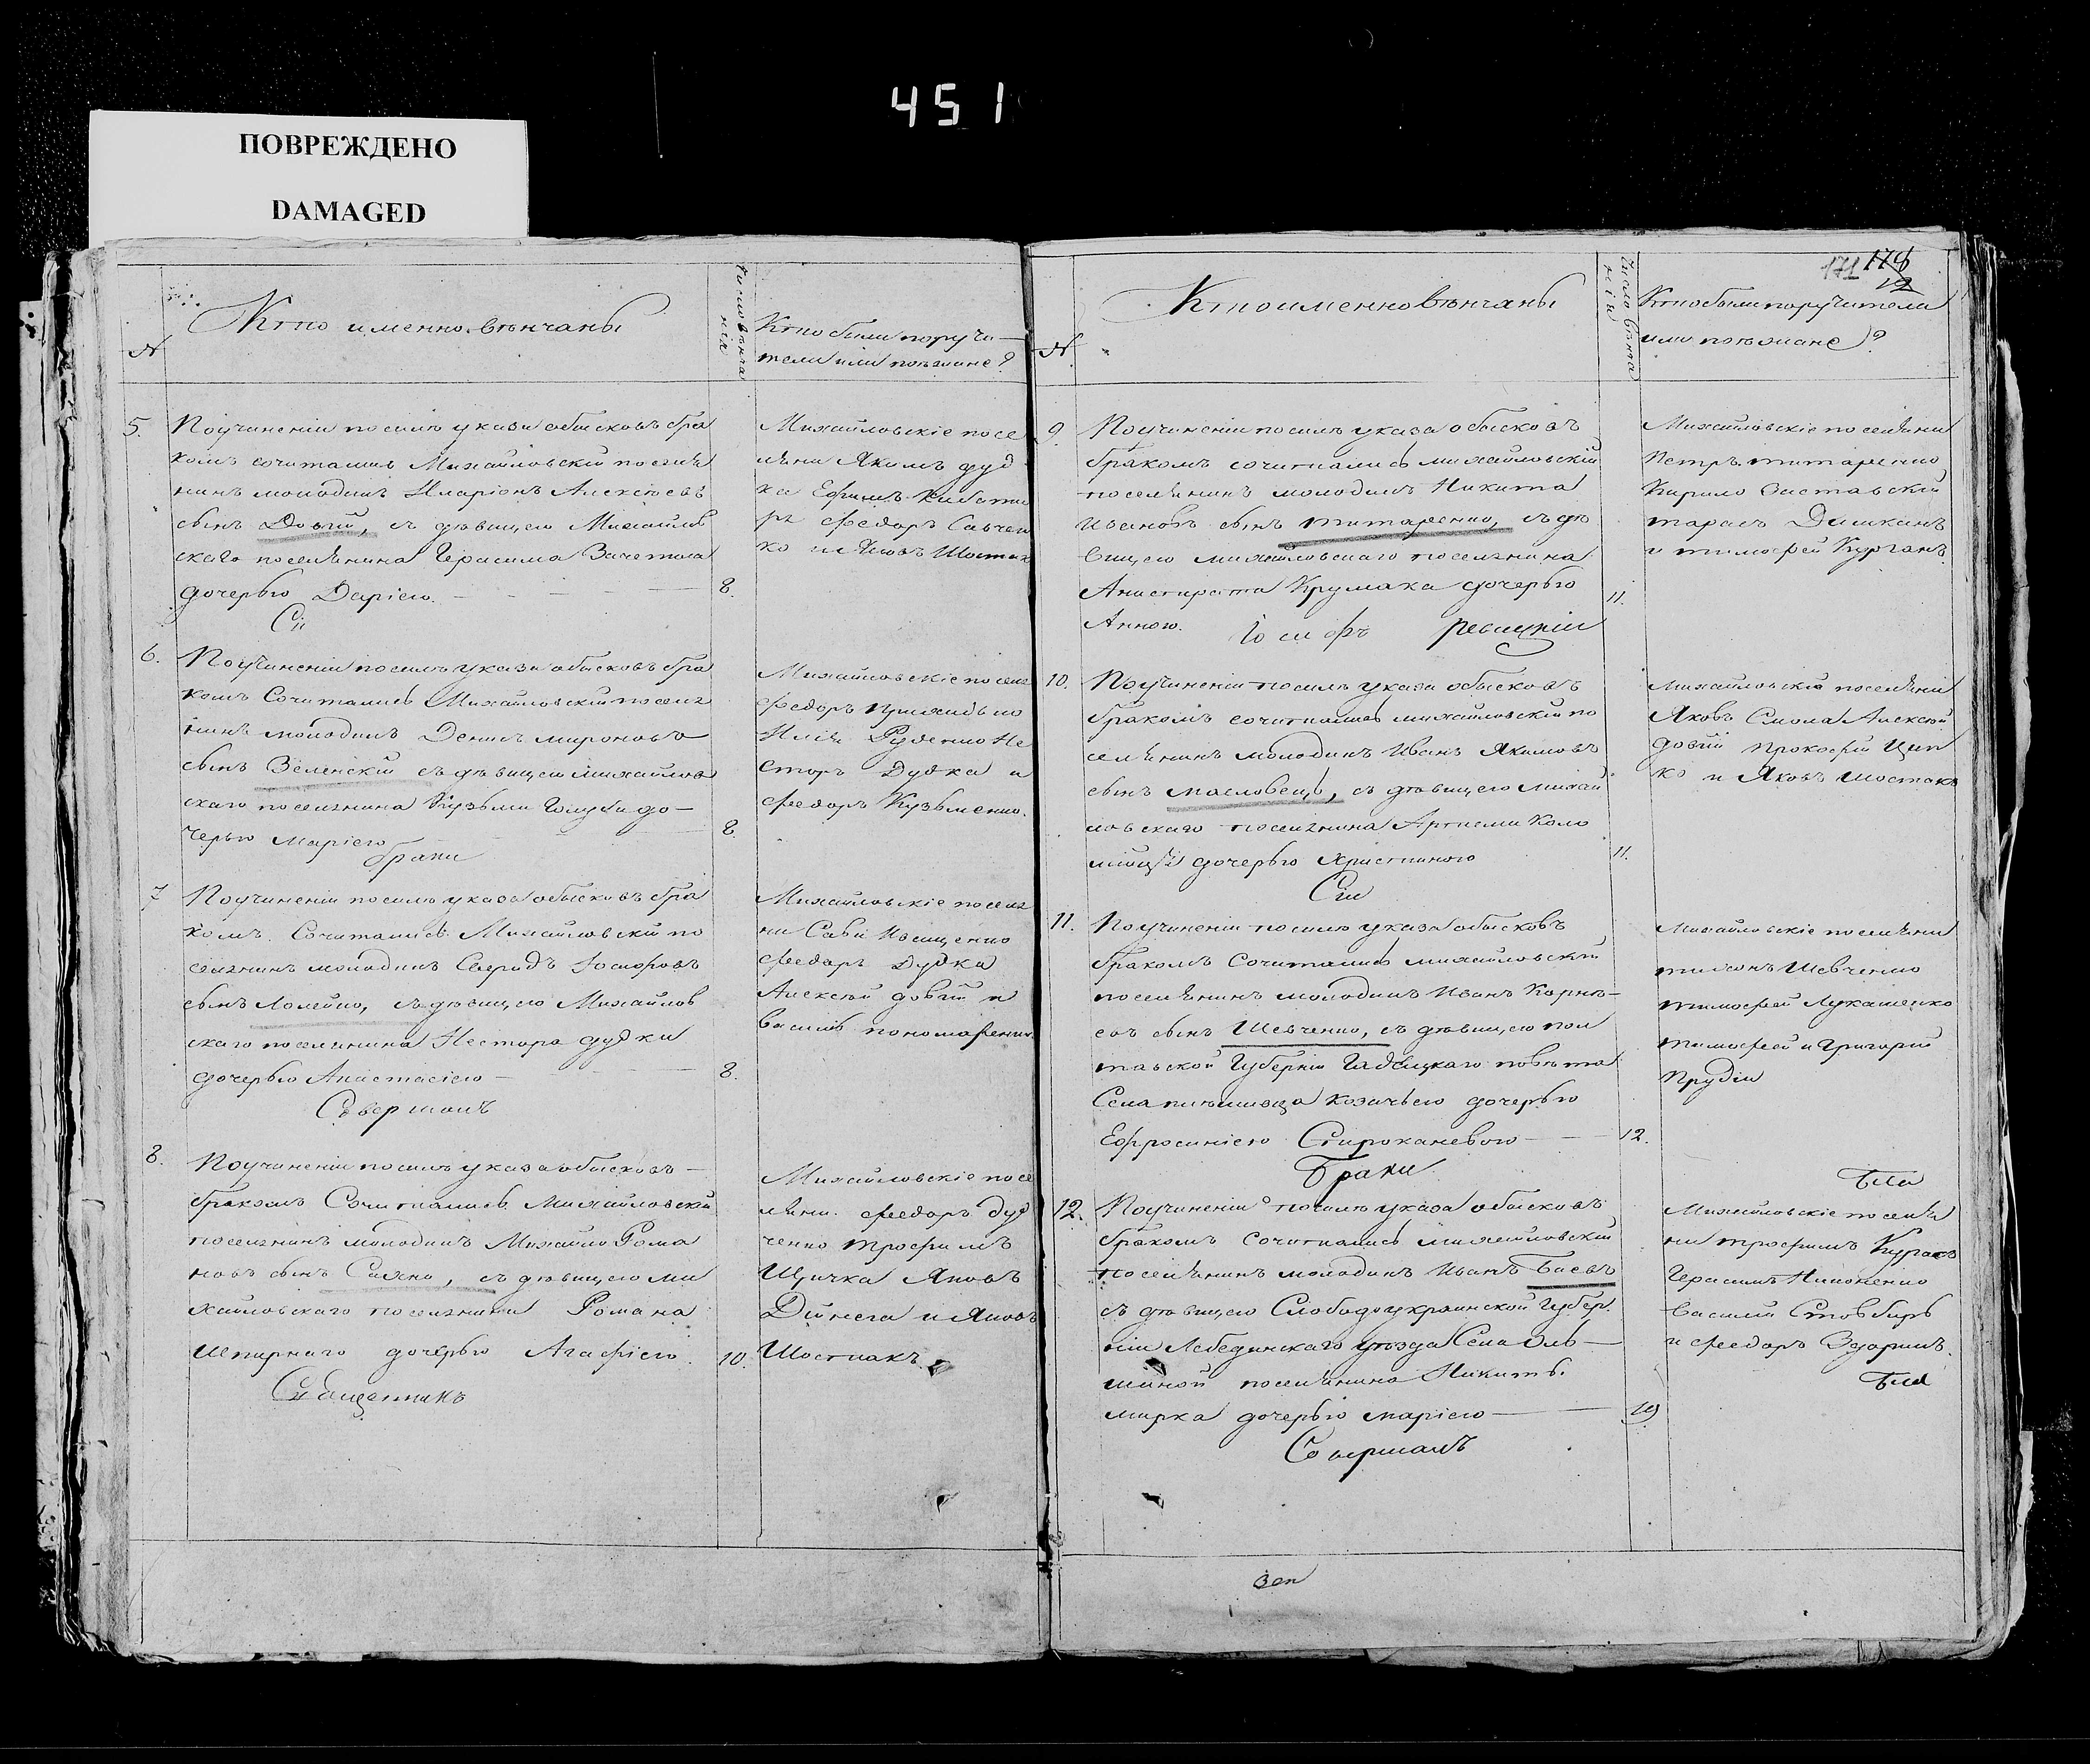 451
ПОВРЕЖДЕНО
DAMAGED
№
Кто именно венчаны
Число венча
нія
Кто были поручи-
тели или поезжане?
5.
По учиненіи посилѣ указа обысковъ бра
комъ сочитались Михайловскій поселя
нинъ молодикъ Иларіонъ Алексѣевъ
сынъ Довгій, съ дѣвицею Михайлов
скаго поселянина Герасима
дочерью Даріею.
8.
Михайловскіе посе
ляни Якимъ дуд
ка Ефимъ
ръ Федоръ Савчен
ко и Яковъ Шостак
Сіи
6.
По учиненіи посилѣ указа обысковъ бра
комъ Сочитались Михайловскій поселя
нинъ молодикъ Денисъ Мироновъ
сынъ Зѣленскій съ дѣвицею михайлов
скаго поселянина Кузьми Голуба до-
черью Маріею
8.
Михайловскіе поселя
Федоръ
Илія Руденко Не
сторъ Дудка и
Федоръ Кузьменко.
браки
7
По учиненіи посилѣ указа обысковъ бра
комъ Сочитались Михайловскій по
селянинъ молодикъ
сынъ Ломейко, съ дѣвицею Михайлов
скаго поселянина Нестора дудки
дочерью Анастасіею
8.
Михайловскіе поселя
ни Сава Иващенко
Федоръ Дудка
Алексѣй довгій и
Василь пономаренко
Совершалъ
8.
По учиненіи посилѣ указа обысковъ
бракомъ Сочитались Михайловскій
поселянинъ молодикъ Михайло Рома
новъ сынъ Сахно, съ дѣвицею ми
хайловскаго поселянина Романа
Шпирнаго дочерью Агафіею.
10.
Михайловскіе посе
ляни. Федоръ дуд
ченко Трофимъ
Щичка Яковъ
Дійнега и Яковъ
Шостакъ.
Священникъ
171 178
№
Кто именно венчаны
Число венча
нія
Кто были поручители
или поезжане?
9.
По учиненіи посилѣ указа обысковъ
бракомъ сочитались михайловскій
поселянинъ молодикъ Никита
Ивановъ сынъ титаренко, съ дѣ
вицею михайловскаго поселянина
Анистрата Крумака дочерью
Анною.
11.
Михайловскіе поселяни
Петръ титаренко
Кирило Заставскій
тарасъ Дишканъ
и тимофей Курганъ
Іосифъ Ревицкій
10.
По учиненіи посилѣ указа обысковъ
бракомъ сочитались михайловскій по
селянинъ молодикъ Иванъ Якимовъ
сынъ масловецъ, съ дѣвицею михай
ловскаго поселянина Артема Коло
мійца дочерью Христиною
11.
михайловскіе поселяни
Яковъ Смола Алексѣй
довгій Прокофій Цип
ко и Яковъ Шостакъ
Сіи
11.
По учиненіи посилѣ указа обысковъ
бракомъ Сочитались михайловскій
поселянинъ молодикъ Иванъ Корнѣ-
евъ сынъ Шевченко, съ дѣвицею пол
тавской Губерніи Гадяцкаго повѣта
Села козачьею дочерью
Ефросиніею
12.
Михайловскіе поселяни
тихонъ Шевченко
тимофей Лукашенко
тимофей и Григорій
Прудіи
Браки
12.
По учиненіи посилѣ указа обысковъ
бракомъ сочитались михайловскій
поселянинъ молодикъ Иванъ Баевъ
съ дѣвицею Слободоукраинской Губер.
ніи Лебединскаго уѣзда Села Оль-
шаной поселянина Никиты.
мирка дочерью маріею
19
Михайловскіе поселя
ни трофимъ Курасъ
Герасимъ Никоненко
Василій Стовбиръ
и Федоръ Здоришъ.
Совершалъ